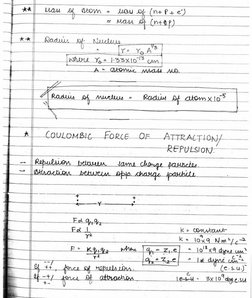 ** Mass of atom = Mass of (n+P+e⁻)
≈ Mass of (n+P)
** Radius of Nucleus
r = r₀ A^1/3
where r₀ = 1.33×10⁻¹³ cm
A - atomic mass no.
Radius of nucleus = Radius of atom×10⁻⁵
* COULOMBIC FORCE OF ATTRACTION/
REPULSION
- Repulsion between same charge particles
- Attraction between opp charge particle
r
F∝ q₁q₂
F∝ 1/r²
K = constant
K = 10×9 Nm²/c⁻²
F = K q₁q₂/r² where q₁ = Z₁e = 10¹⁸×9 dyne cm²
q₂ = Z₂e = 1× dyne cm²
(e.s.u)
If force of repulsion
If -/+ force of attraction 3×10⁹ esu